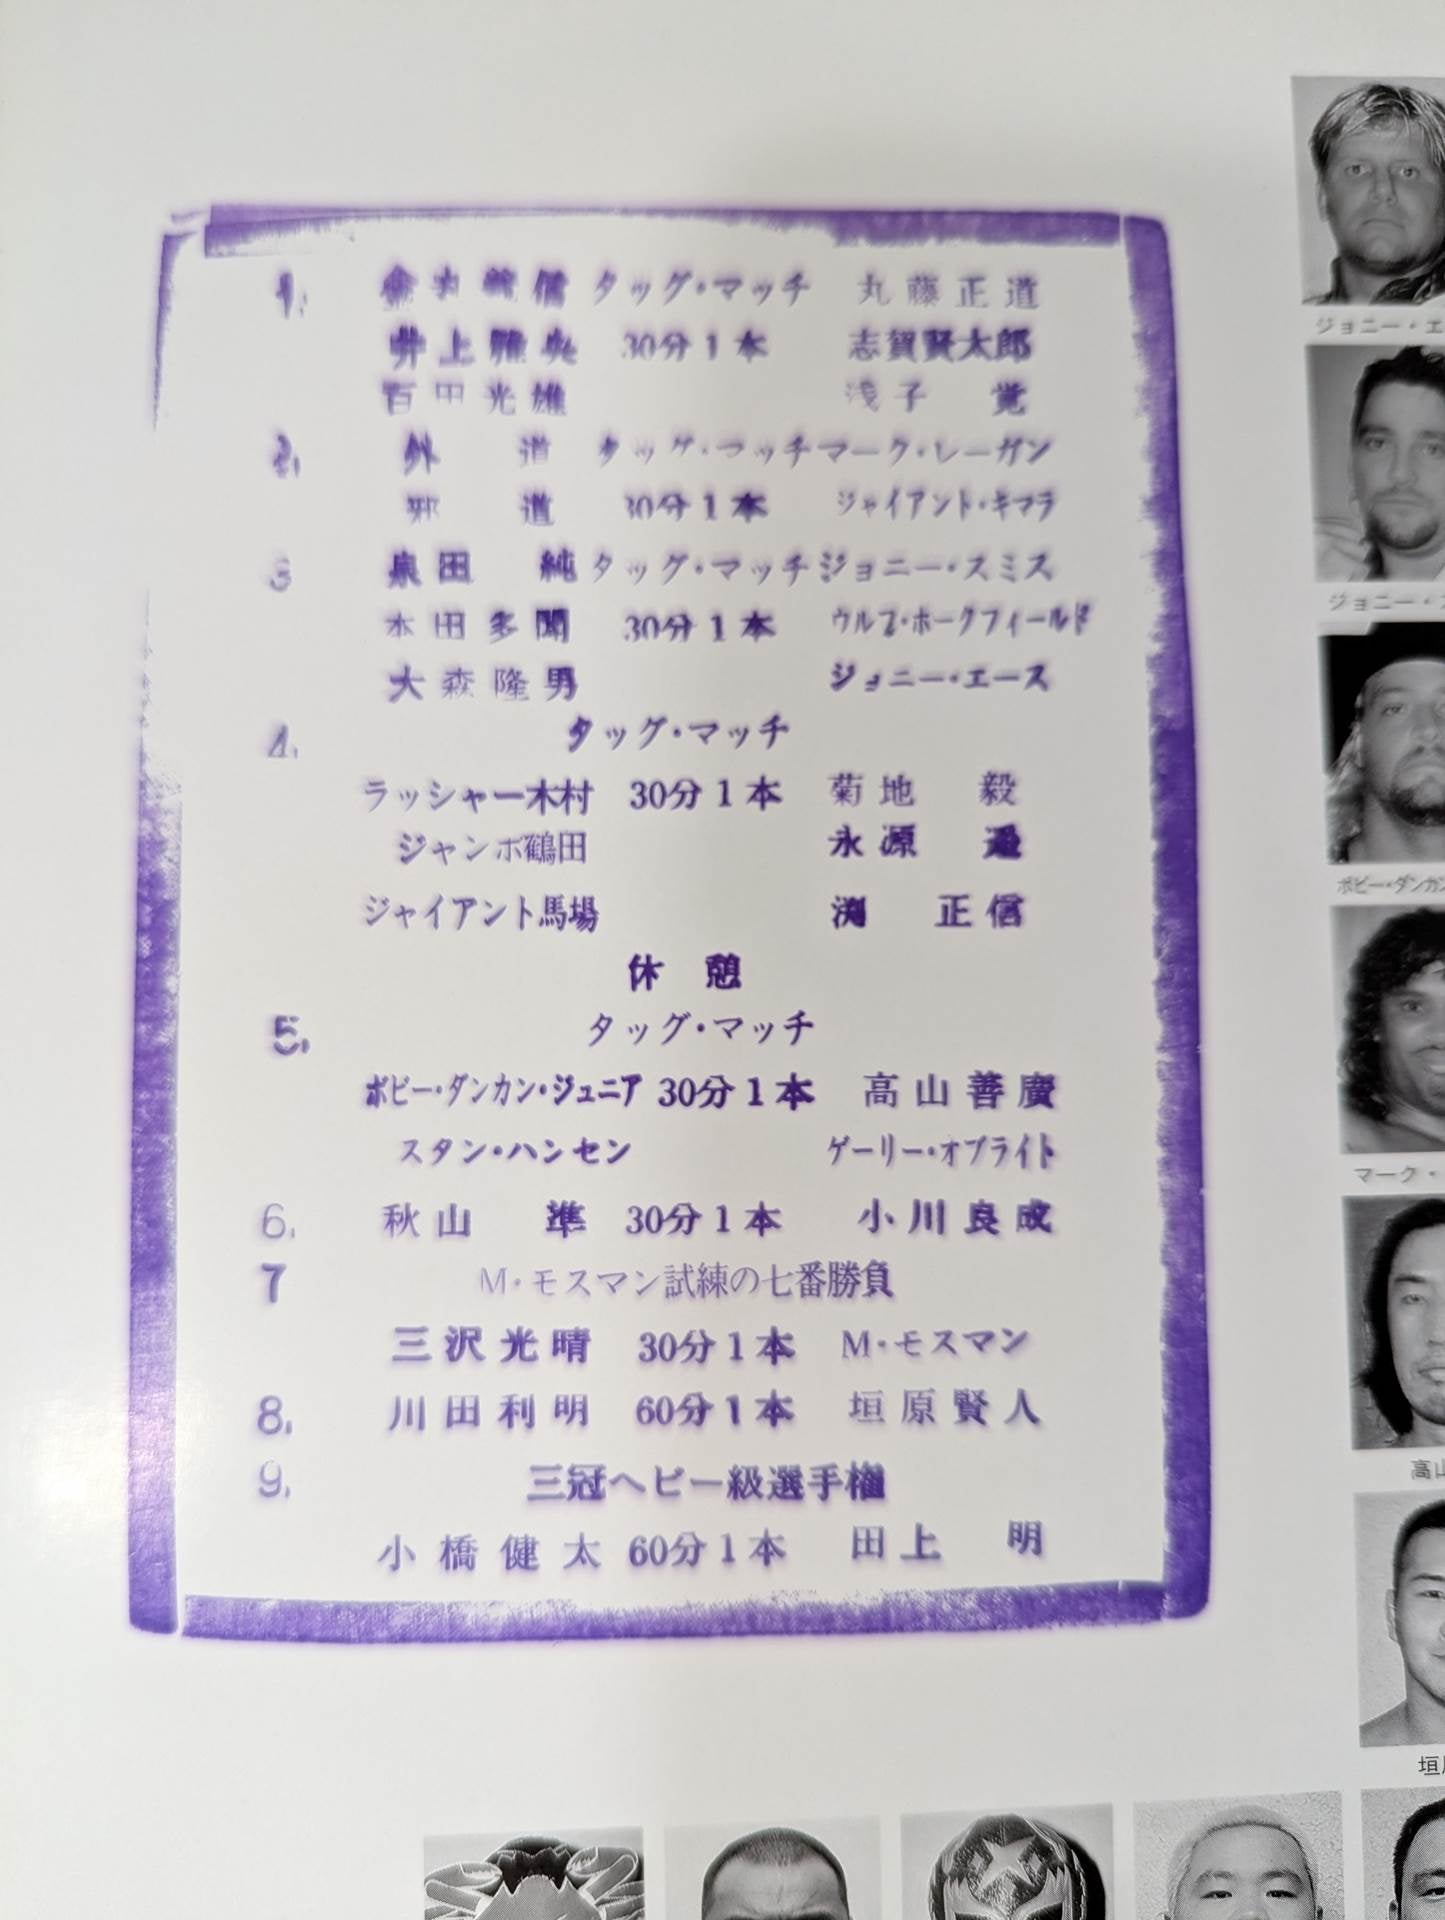 1. 金丸義信 タッグ・マッチ 丸藤正道
井上雅央 30分1本 志賀賢太郎
百田光雄 浅子 覚
2. 外 道 タッグ・マッチ マーク・レーガン
邪 道 30分1本 ジャイアント・キマラ
3 泉田 純 タッグ・マッチ ジョニー・スミス
本田多聞 30分1本 ウルフ・ホークフィールド
大森隆男 ジョニー・エース
4. タッグ・マッチ
ラッシャー木村 30分1本 菊地 毅
ジャンボ鶴田 永源 遥
ジャイアント馬場 渕 正信
休 憩
5. タッグ・マッチ
ボビー・ダンカン・ジュニア 30分1本 高山善廣
スタン・ハンセン ゲーリー・オブライト
6. 秋山 準 30分1本 小川良成
7 M・モスマン試練の七番勝負
三沢光晴 30分1本 M・モスマン
8. 川田利明 60分1本 垣原賢人
9. 三冠ヘビー級選手権
小橋健太 60分1本 田上 明
ジョニー・エ
ジョニー・ス
ボビー・ダンカン
マーク・
高山
垣原